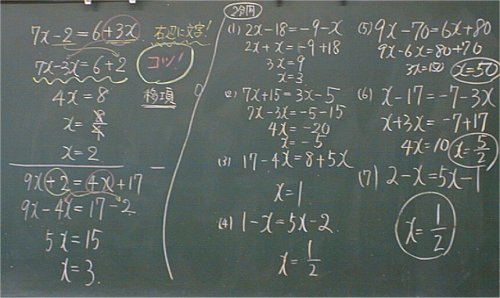 7x-2=6+3x
右辺に文字!
7x-3x=6+2
コツ!
4x=8
移項
x=8/4
x=2
9x+2=4x+17
9x-4x=17-2
5x=15
x=3
2分間
(1) 2x-18=-9-x
2x+x=-9+18
3x=9
x=3
(2) 7x+15=3x-5
7x-3x=-5-15
4x=-20
x=-5
(3) 17-4x=8+5x
x=1
(4) 1-x=5x-2
x=1/2
(5) 9x-70=6x+80
9x-6x=80+70
3x=150
x=50
(6) x-17=-7-3x
x+3x=-7+17
4x=10
x=5/2
(7) 2-x=5x-1
x=1/2